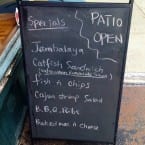 Specials
PATIO
OPEN
Jambalaya
Catfish Sandwich
fish n chips
Cajun shrimp Salad
B.B.Q. Ribs
Baked mac n cheese